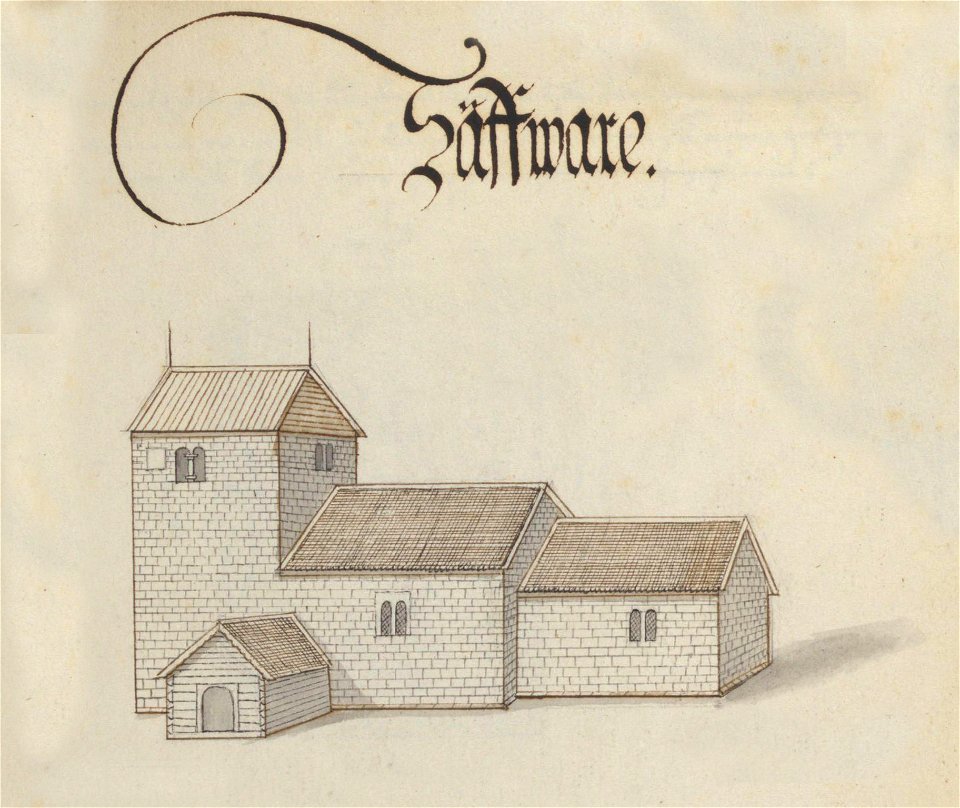 Säffware.